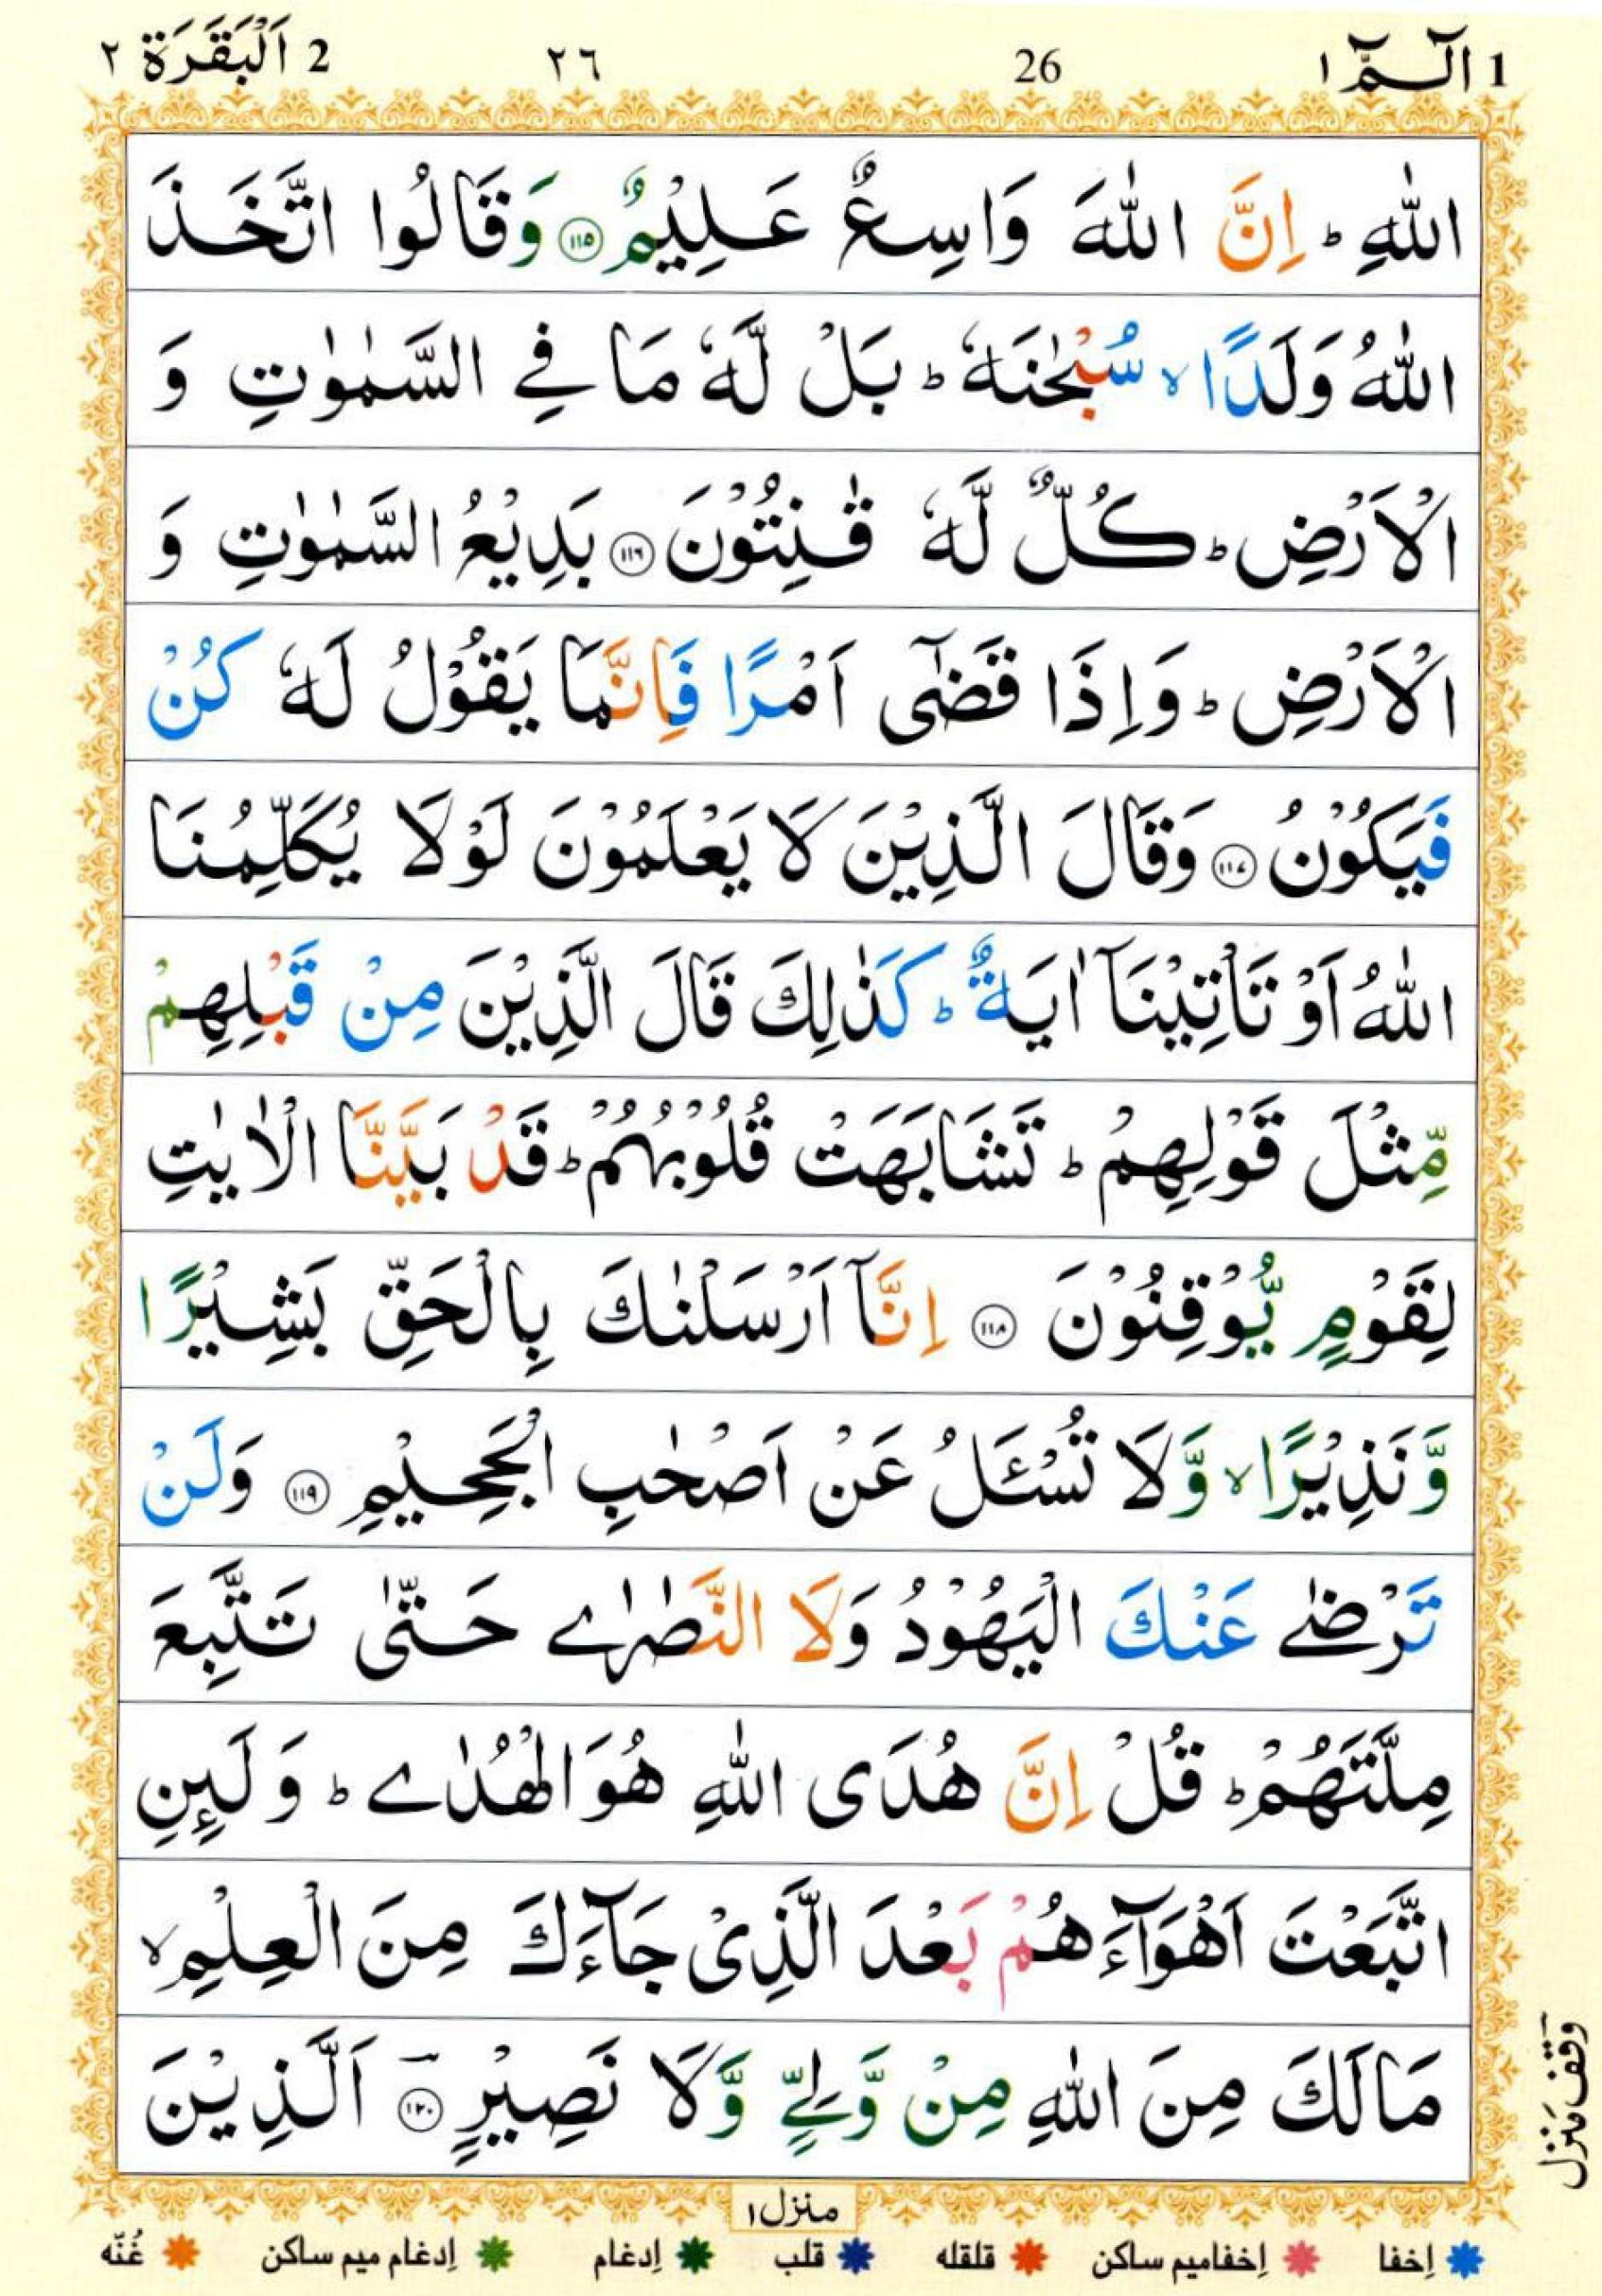 1 الٓـمّٓ ١ 26 ٢٦ 2 اَلْبَقَرَة ٢
اللّٰهِ ؕ اِنَّ اللّٰهَ وَاسِعٌ عَلِيْمٌ ﴿١١٥﴾ وَقَالُوا اتَّخَذَ
اللّٰهُ وَلَدًا ۙ سُبْحٰنَهٗ ؕ بَلْ لَّهٗ مَا فِي السَّمٰوٰتِ وَ
الْاَرْضِ ؕ كُلٌّ لَّهٗ قٰنِتُوْنَ ﴿١١٦﴾ بَدِيْعُ السَّمٰوٰتِ وَ
الْاَرْضِ ؕ وَاِذَا قَضٰٓى اَمْرًا فَاِنَّمَا يَقُوْلُ لَهٗ كُنْ
فَيَكُوْنُ ﴿١١٧﴾ وَقَالَ الَّذِيْنَ لَا يَعْلَمُوْنَ لَوْلَا يُكَلِّمُنَا
اللّٰهُ اَوْ تَاْتِيْنَآ اٰيَةٌ ؕ كَذٰلِكَ قَالَ الَّذِيْنَ مِنْ قَبْلِهِمْ
مِّثْلَ قَوْلِهِمْ ؕ تَشَابَهَتْ قُلُوْبُهُمْ ؕ قَدْ بَيَّنَّا الْاٰيٰتِ
لِقَوْمٍ يُّوْقِنُوْنَ ﴿١١٨﴾ اِنَّآ اَرْسَلْنٰكَ بِالْحَقِّ بَشِيْرًا
وَّنَذِيْرًا ۙ وَّلَا تُسْـَٔلُ عَنْ اَصْحٰبِ الْجَحِيْمِ ﴿١١٩﴾ وَلَنْ
تَرْضٰے عَنْكَ الْيَهُوْدُ وَلَا النَّصٰرٰے حَتّٰى تَتَّبِعَ
مِلَّتَهُمْ ؕ قُلْ اِنَّ هُدَى اللّٰهِ هُوَ الْهُدٰے ؕ وَلَئِنِ
اتَّبَعْتَ اَهْوَآءَهُمْ بَعْدَ الَّذِيْ جَآءَكَ مِنَ الْعِلْمِ ۙ
مَا لَكَ مِنَ اللّٰهِ مِنْ وَّلِيٍّ وَّلَا نَصِيْرٍ ﴿١٢٠﴾ اَلَّذِيْنَ
وقف منزل
منزل ١
اِخفا اِخفامیم ساکن قلقله قلب اِدغام اِدغام میم ساکن غُنّه